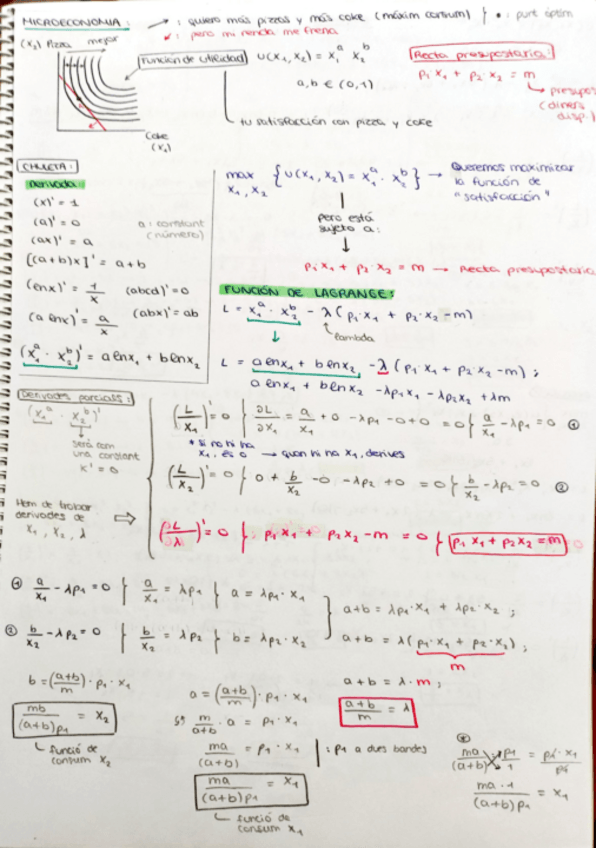 MICROECONOMIA: → : quiero más pizzas y más coke (màxim consum) } • : punt òptim
↙ : pero mi renda me frena
(x₂) Pizza mejor
Función de utilidad U(x₁, x₂) = x₁ᵃ x₂ᵇ
a, b ∈ (0, 1)
tu satisfacción con pizza y coke
Coke (x₁)
Recta presupostaria:
p₁ x₁ + p₂ x₂ = m
(diners disp.)
CHULETA:
Derivada:
(x)' = 1
(a)' = 0 a : constant
(ax)' = a (número)
[(a+b)x]' = a+b
(lnx)' = 1/x (abcd)' = 0
(a lnx)' = a/x (abx)' = ab
(x₁ᵃ · x₂ᵇ)' = a lnx₁ + b lnx₂
max x₁, x₂ { U(x₁, x₂) = x₁ᵃ · x₂ᵇ } → Queremos maximizar
la función de
"satisfacción"
pero está
sujeto a:
p₁x₁ + p₂ x₂ = m → Recta presupostaria
FUNCIÓN DE LAGRANGE:
L = x₁ᵃ · x₂ᵇ - λ(p₁ x₁ + p₂ x₂ - m)
lambda
L = a lnx₁ + b lnx₂ - λ(p₁ x₁ + p₂ x₂ - m) ;
a lnx₁ + b lnx₂ - λp₁x₁ - λp₂x₂ + λm
Derivades parcials:
(x₁ᵃ · x₂ᵇ)'
serà com
una constant
K' = 0
Hem de trobar
derivades de
x₁, x₂, λ ⇨
(L/x₁)' = 0 } ∂L/∂x₁ = a/x₁ + 0 - λp₁ - 0 + 0 = 0 } a/x₁ - λp₁ = 0 ①
* si no hi ha
x₁, és 0 → quan hi ha x₁, derives
(L/x₂)' = 0 } 0 + b/x₂ - 0 - λp₂ + 0 = 0 } b/x₂ - λp₂ = 0 ②
(∂L/λ)' = 0 } ; p₁ x₁ + p₂ x₂ - m = 0 } p₁ x₁ + p₂ x₂ = m
① a/x₁ - λp₁ = 0 } a/x₁ = λp₁ } a = λp₁ · x₁
② b/x₂ - λp₂ = 0 } b/x₂ = λp₂ } b = λp₂ · x₂
a + b = λp₁ · x₁ + λp₂ · x₂ ;
a + b = λ(p₁ · x₁ + p₂ · x₂) ;
m
a + b = λ · m ;
(a+b)/m = λ
b = ((a+b)/m) · p₁ · x₁
mb/((a+b)p₁) = x₂
funció de
consum x₂
a = ((a+b)/m) · p₁ · x₁
m/(a+b) · a = p₁ · x₁
ma/(a+b) = p₁ · x₁ | : p₁ a dues bandes
ma/((a+b)p₁) = x₁
funció de
consum x₁
ma/(a+b) : p₁/1 = p₁ · x₁/p₁
ma · 1/((a+b)p₁) = x₁